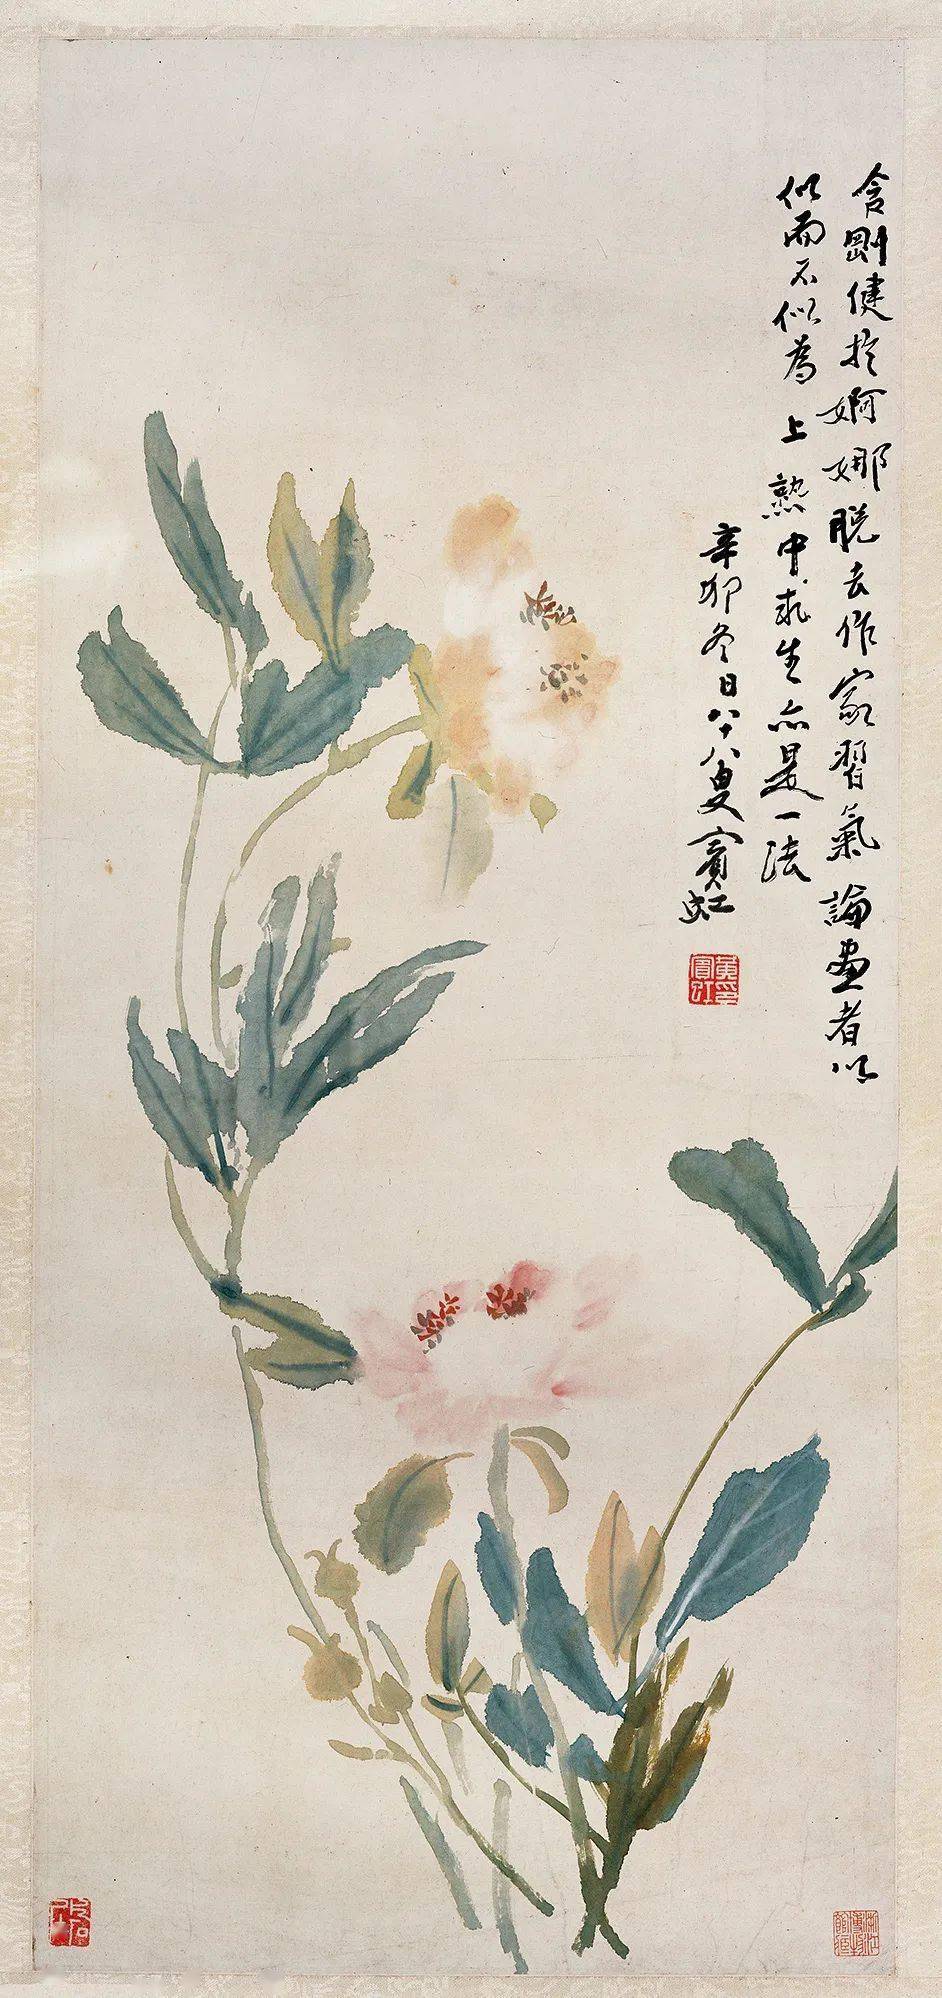 含剛健於婀娜脫去作家習氣論畫者以
似而不似為上熟中求生亦是一法
辛卯冬日八十八叟賓虹
黃賓虹印
浙江博物館藏